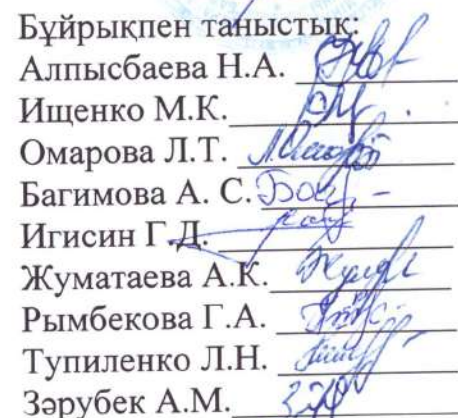 Бұйрықпен таныстық:
Алпысбаева Н.А.
Ищенко М.К.
Омарова Л.Т.
Багимова А. С.
Игисин Г.Д.
Жуматаева А.К.
Рымбекова Г.А.
Тупиленко Л.Н.
Зәрубек А.М.